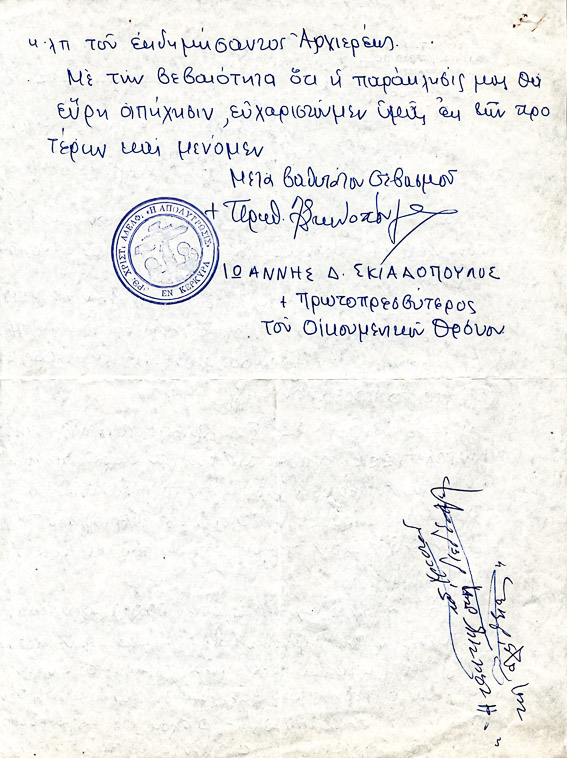 κ.λπ τοῦ ἐκδημήσαντος Ἀρχιερέως.
Μὲ τὴν βεβαιότητα ὅτι ἡ παράκλησίς μας θὰ
εὕρῃ ἀπήχησιν, εὐχαριστοῦμεν ὑμᾶς ἐκ τῶν προ
τέρων καὶ μένομεν
Μετὰ βαθυτάτου σεβασμοῦ
ΟΡΘ. ΧΡΙΣΤ. ΑΔΕΛΦ. «Η ΑΠΟΛΥΤΡΩΣΙΣ»
ΕΝ ΚΕΡΚΥΡΑ
ΙΩΑΝΝΗΣ Δ. ΣΚΙΑΔΟΠΟΥΛΟΣ
+ Πρωτοπρεσβύτερος
τοῦ Οἰκουμενικοῦ Θρόνου